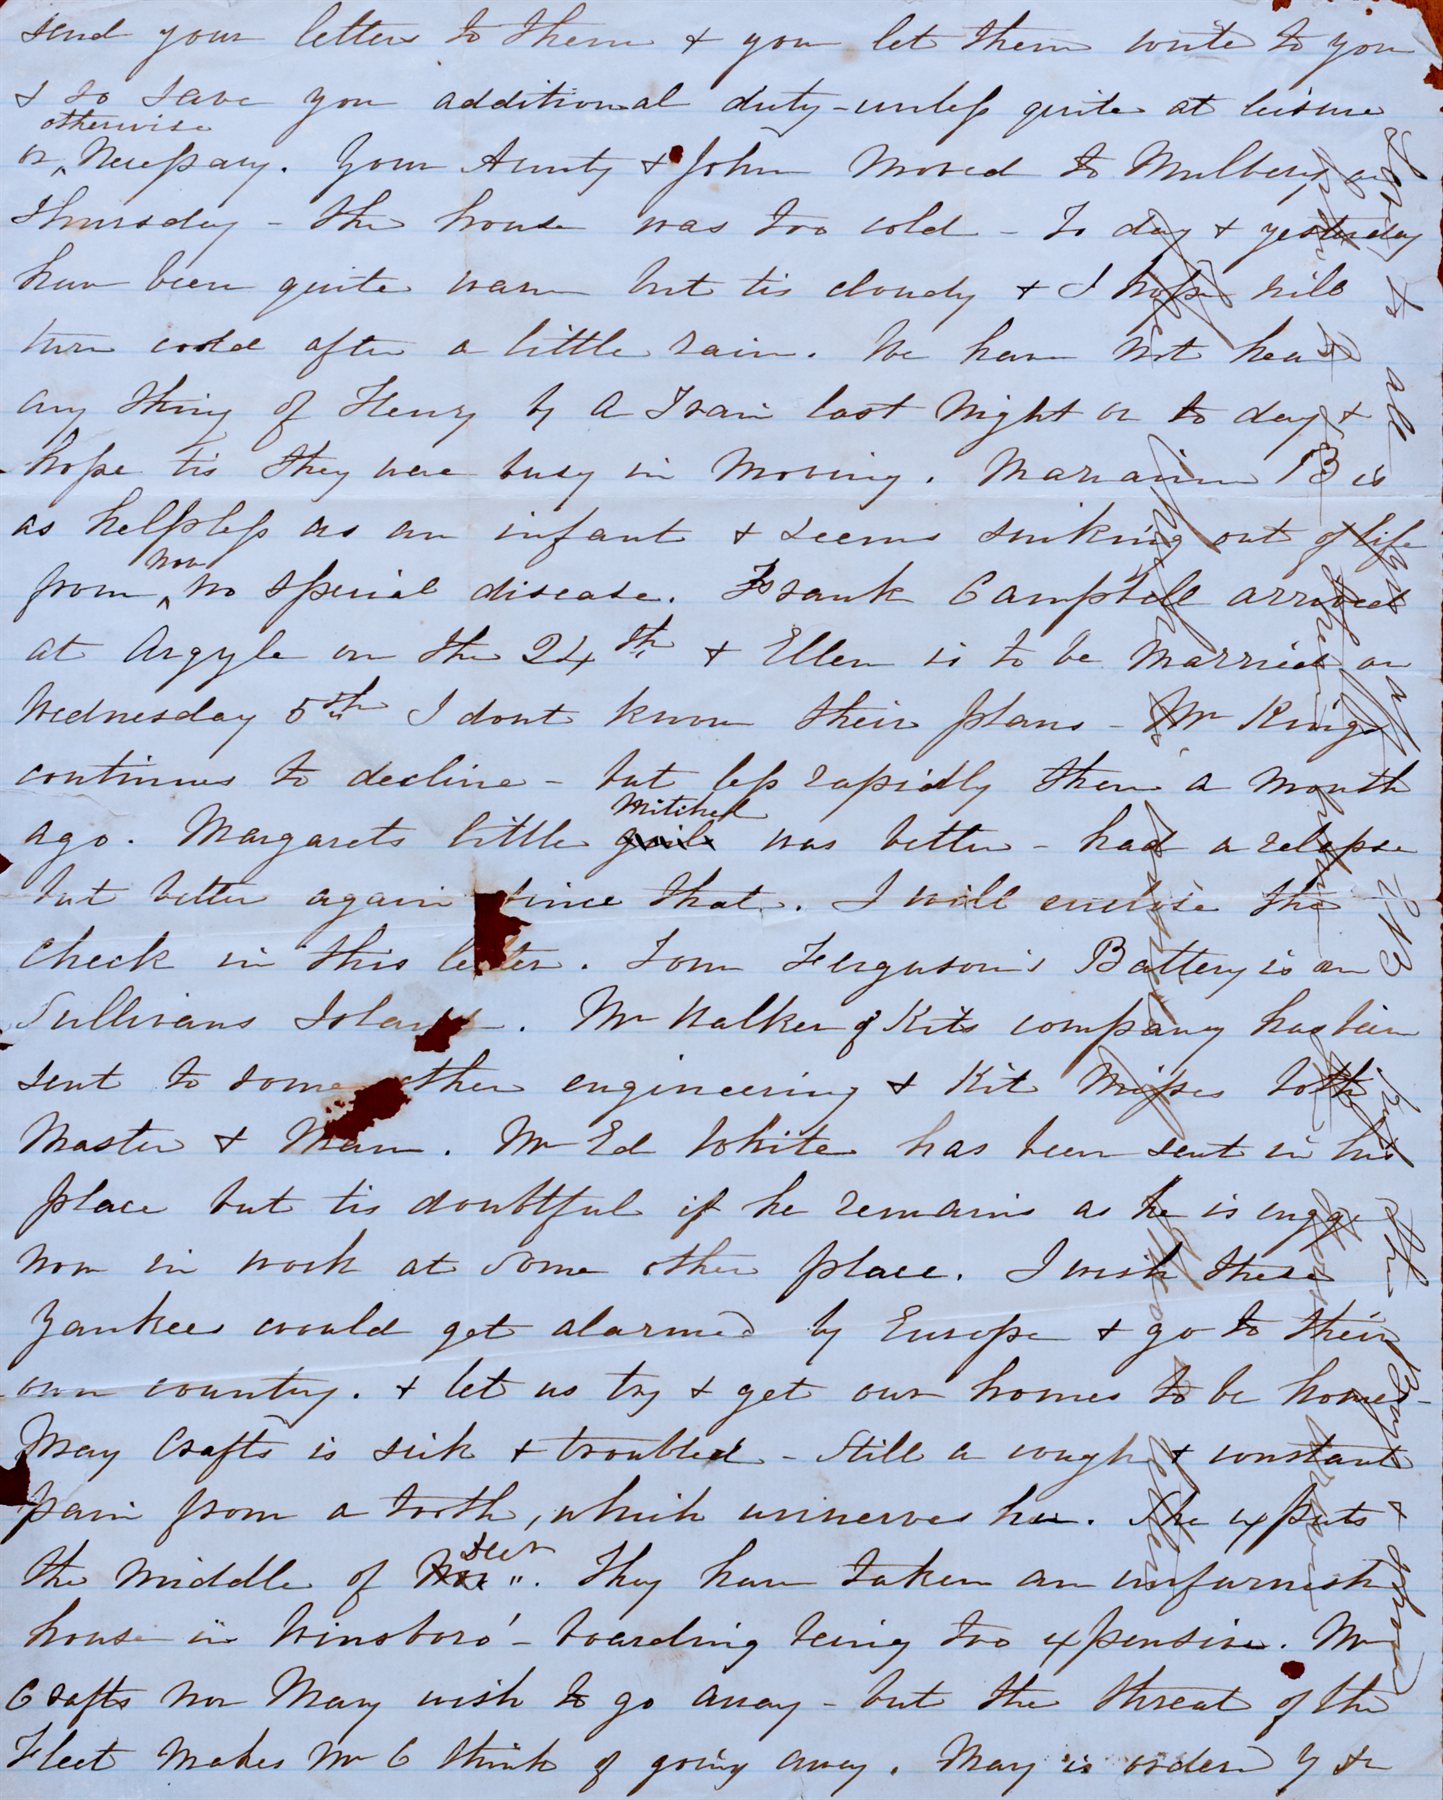 send your letters to them & you let them write to you
& so save you additional duty - unless quite at leisure
or ^ otherwise Necessary. Your Aunty & John moved to Mulberry on
Thursday - the house was too cold - To day & yesterday
have been quite warm but tis cloudy & I hope will
turn cold after a little rain. We have not hea
any thing of Henry by a Train last Night or to day &
hope tis they were busy in moving. Mariann B is
as helpless as an infant & seems sinking out of life
from ^ now no special disease. Frank Campbell arrived
at Argyle on the 24th & Ellen is to be Married on
Wednesday 5th I dont know their plans - Mr King
continues to decline - but less rapidly then a month
ago. Margarets little Mitchel was better - had a relapse
but better again since that. I will enclose the
Check in this letter. Tom Ferguson's Battery is on
Sullivans Island. Mr Walker of Kits company has been
sent to some other engineering & Kit Misses both
Master & Man. Mr Ed White has been sent in his
place but tis doubtful if he remains as he is engge
now in work at some other place. I wish these
Yankees would get alarmed by Europe & go to their
own country. & let us try & get our homes to be homes -
May Crafts is sick & troubled - Still a cough & constant
pain from a tooth, which unnerves her. She expects
the Middle of Decr. They have taken an unfurnish
house in Winsboro' - boarding being too expensive. Mr
Crafts nor Mary wish to go away - but the threat of the
Fleet makes Mr C think of going away. Mary is order
Love to all